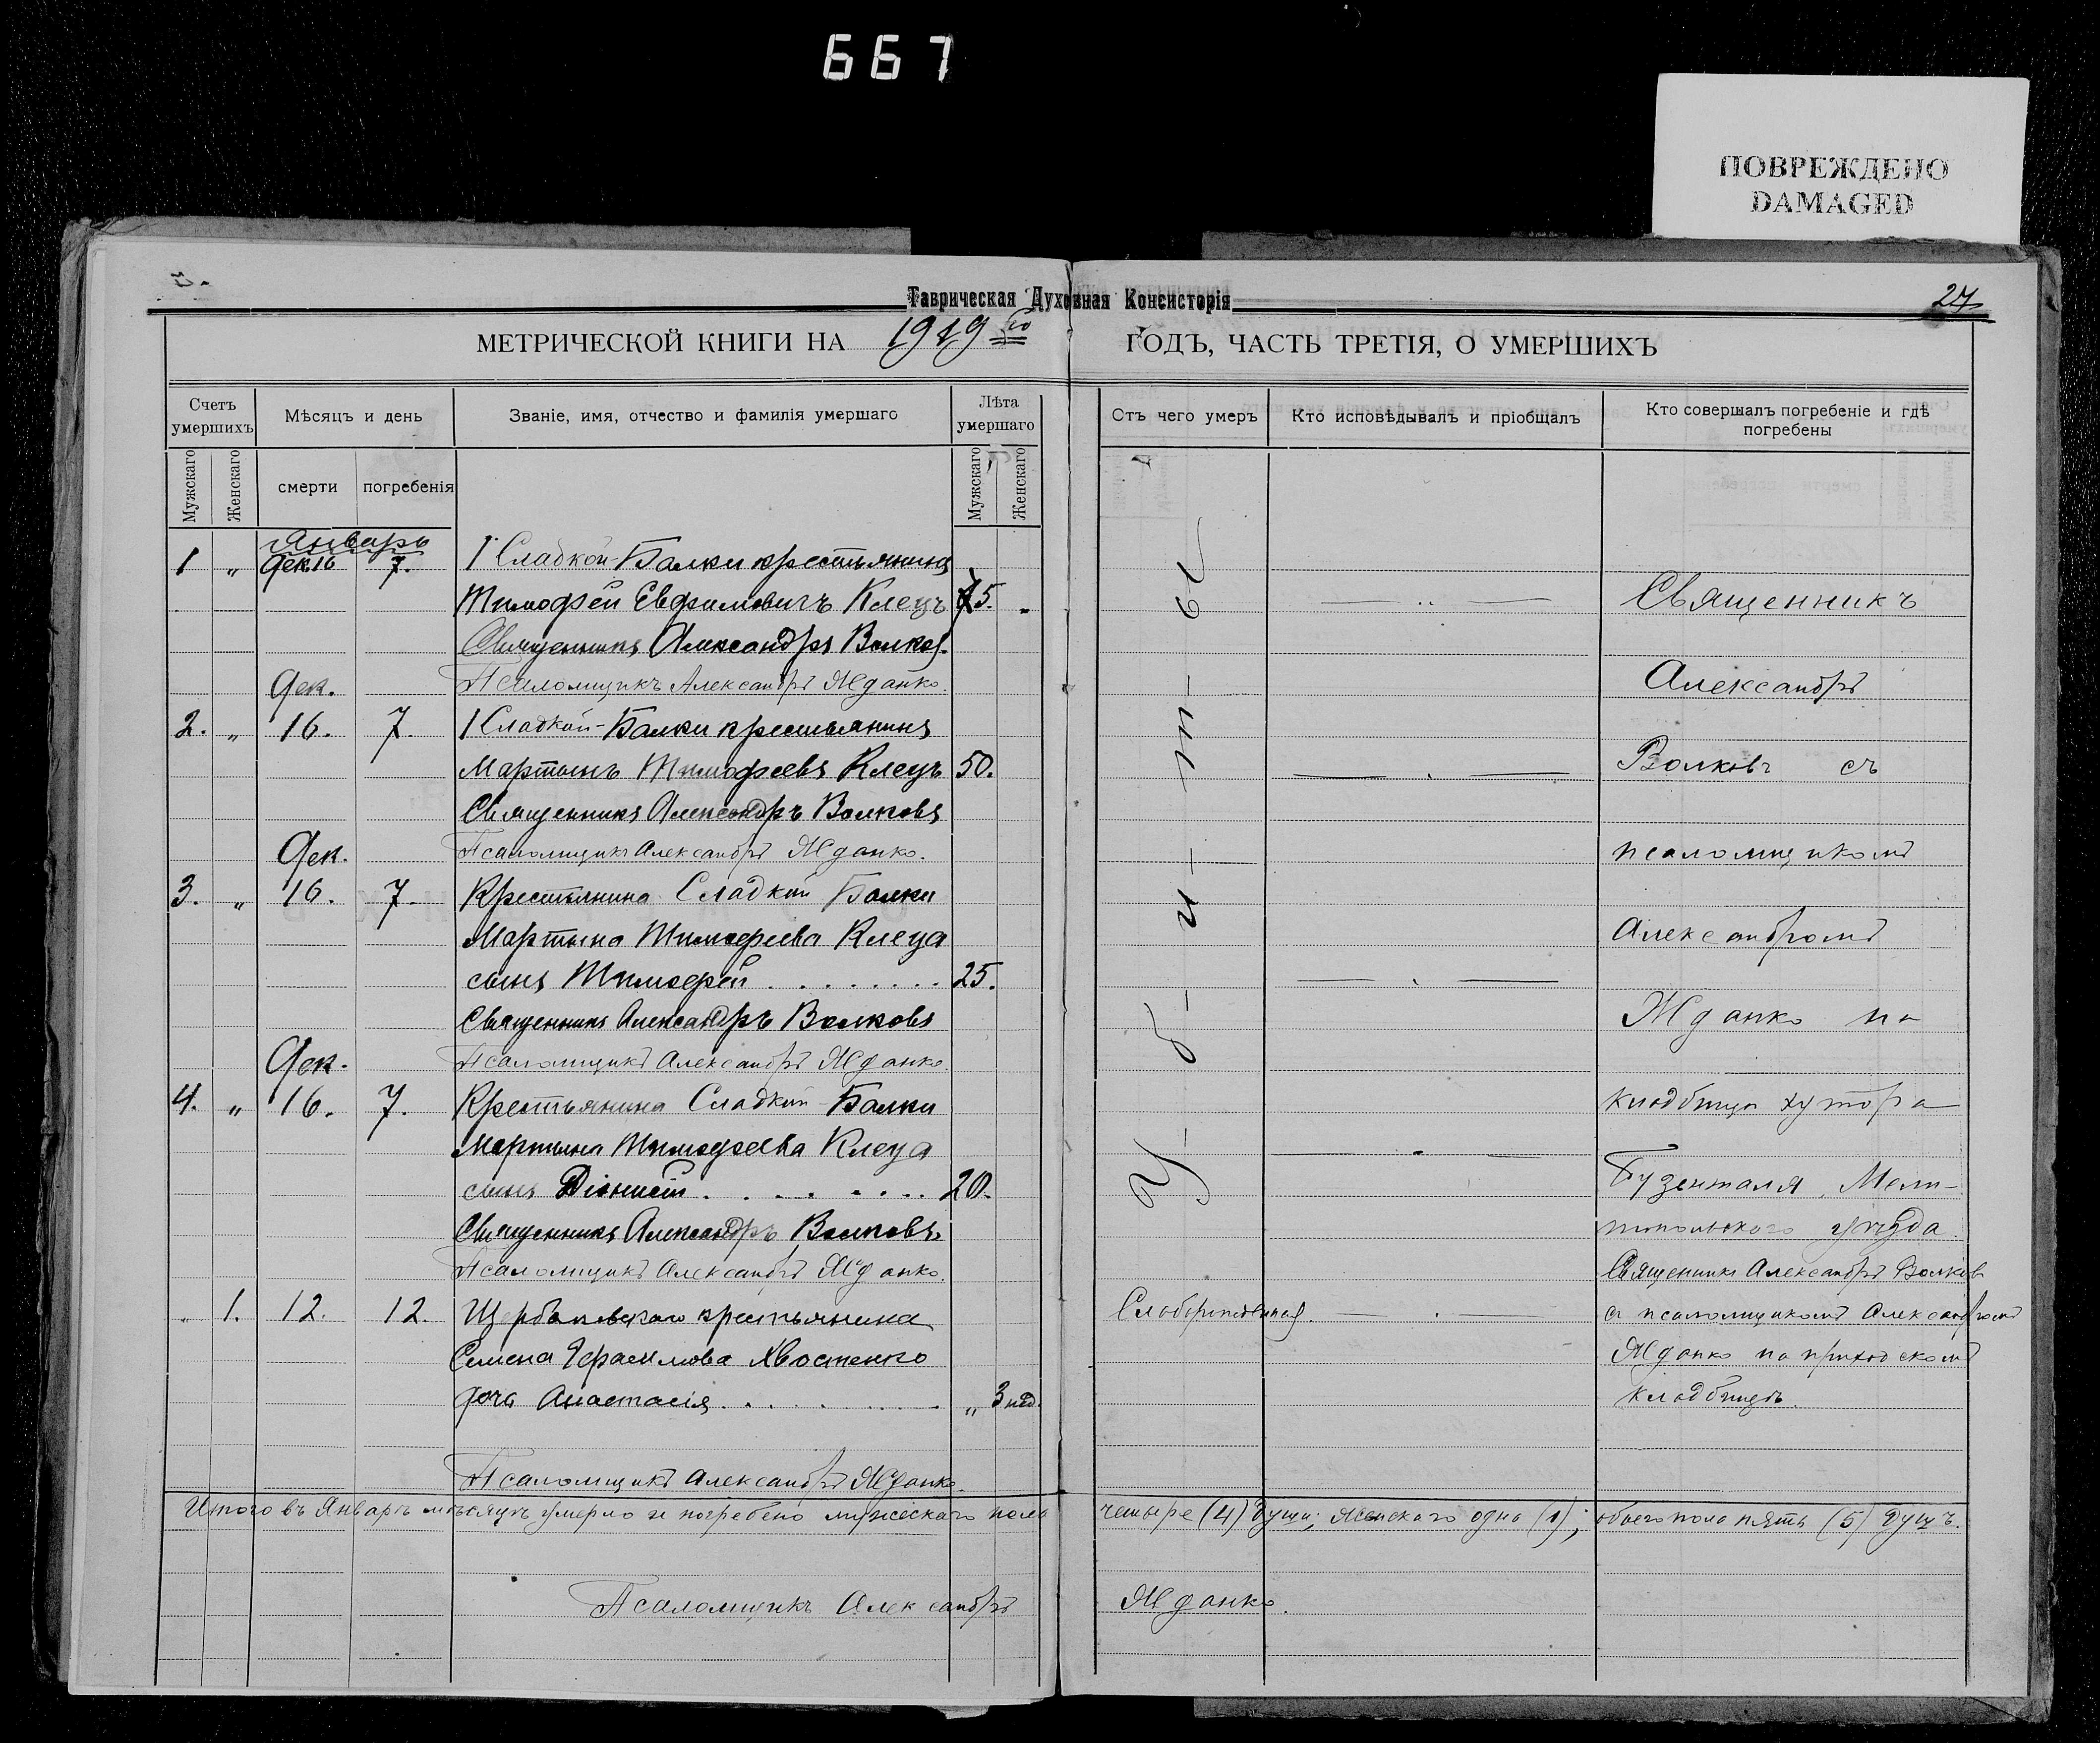 667
ПОВРЕЖДЕНО
DAMAGED
Таврическая Духовная Консисторія
27
МЕТРИЧЕСКОЙ КНИГИ НА 1919 ый ГОДЪ, ЧАСТЬ ТРЕТІЯ, О УМЕРШИХЪ
Счетъ умершихъ
Мѣсяцъ и день
Званіе, имя, отчество и фамилія умершаго
Лѣта умершаго
Отъ чего умеръ
Кто исповѣдывалъ и пріобщалъ
Кто совершалъ погребеніе и гдѣ погребены
Мужскаго
Женскаго
смерти
погребенія
Мужскаго
Женскаго
Январь
1 „ Дек 16 7. Сладкой-Балки крестьянинъ
Тимофей Евфимовичъ Клецъ 75. „
Священникъ Александръ Волковъ
Псаломщикъ Александръ Жданко.
Дек.
2. „ 16. 7. Сладкой-Балки крестьянинъ
Мартынъ Тимофеевъ Клецъ 50.
Священникъ Александръ Волковъ
Псаломщикъ Александръ Жданко.
Дек.
3. „ 16. 7. Крестьянина Сладкой Балки
Мартына Тимофеева Клеца
сынъ Тимофей . . . . . . . . 25.
Священникъ Александръ Волковъ
Псаломщикъ Александръ Жданко.
Дек.
4. „ 16. 7. Крестьянина Сладкой-Балки
Мартына Тимофеева Клеца
сынъ Діонисій . . . . . . . 20.
Священникъ Александръ Волковъ
Псаломщикъ Александръ Жданко.
„ 1. 12. 12. Щербаковскаго крестьянина
Семена Герасимова Хвостенко
дочь Анастасія . . . . . . . . „ 3 нед.
Псаломщикъ Александръ Жданко.
У-б-и-т-ы
Слаборожденная.
Священникъ
Александръ
Волковъ съ
псаломщикомъ
Александромъ
Жданко на
кладбищѣ хутора
Бузенталя, Мели-
топольскаго уѣзда.
Священникъ Александръ Волковъ
съ псаломщикомъ Александромъ
Жданко на приходскомъ
кладбищѣ.
Итого въ Январѣ мѣсяцѣ умерло и погребено мужескаго пола четыре (4) души; женскаго одна (1); обоего пола пять (5) душъ.
Псаломщикъ Александръ Жданко.